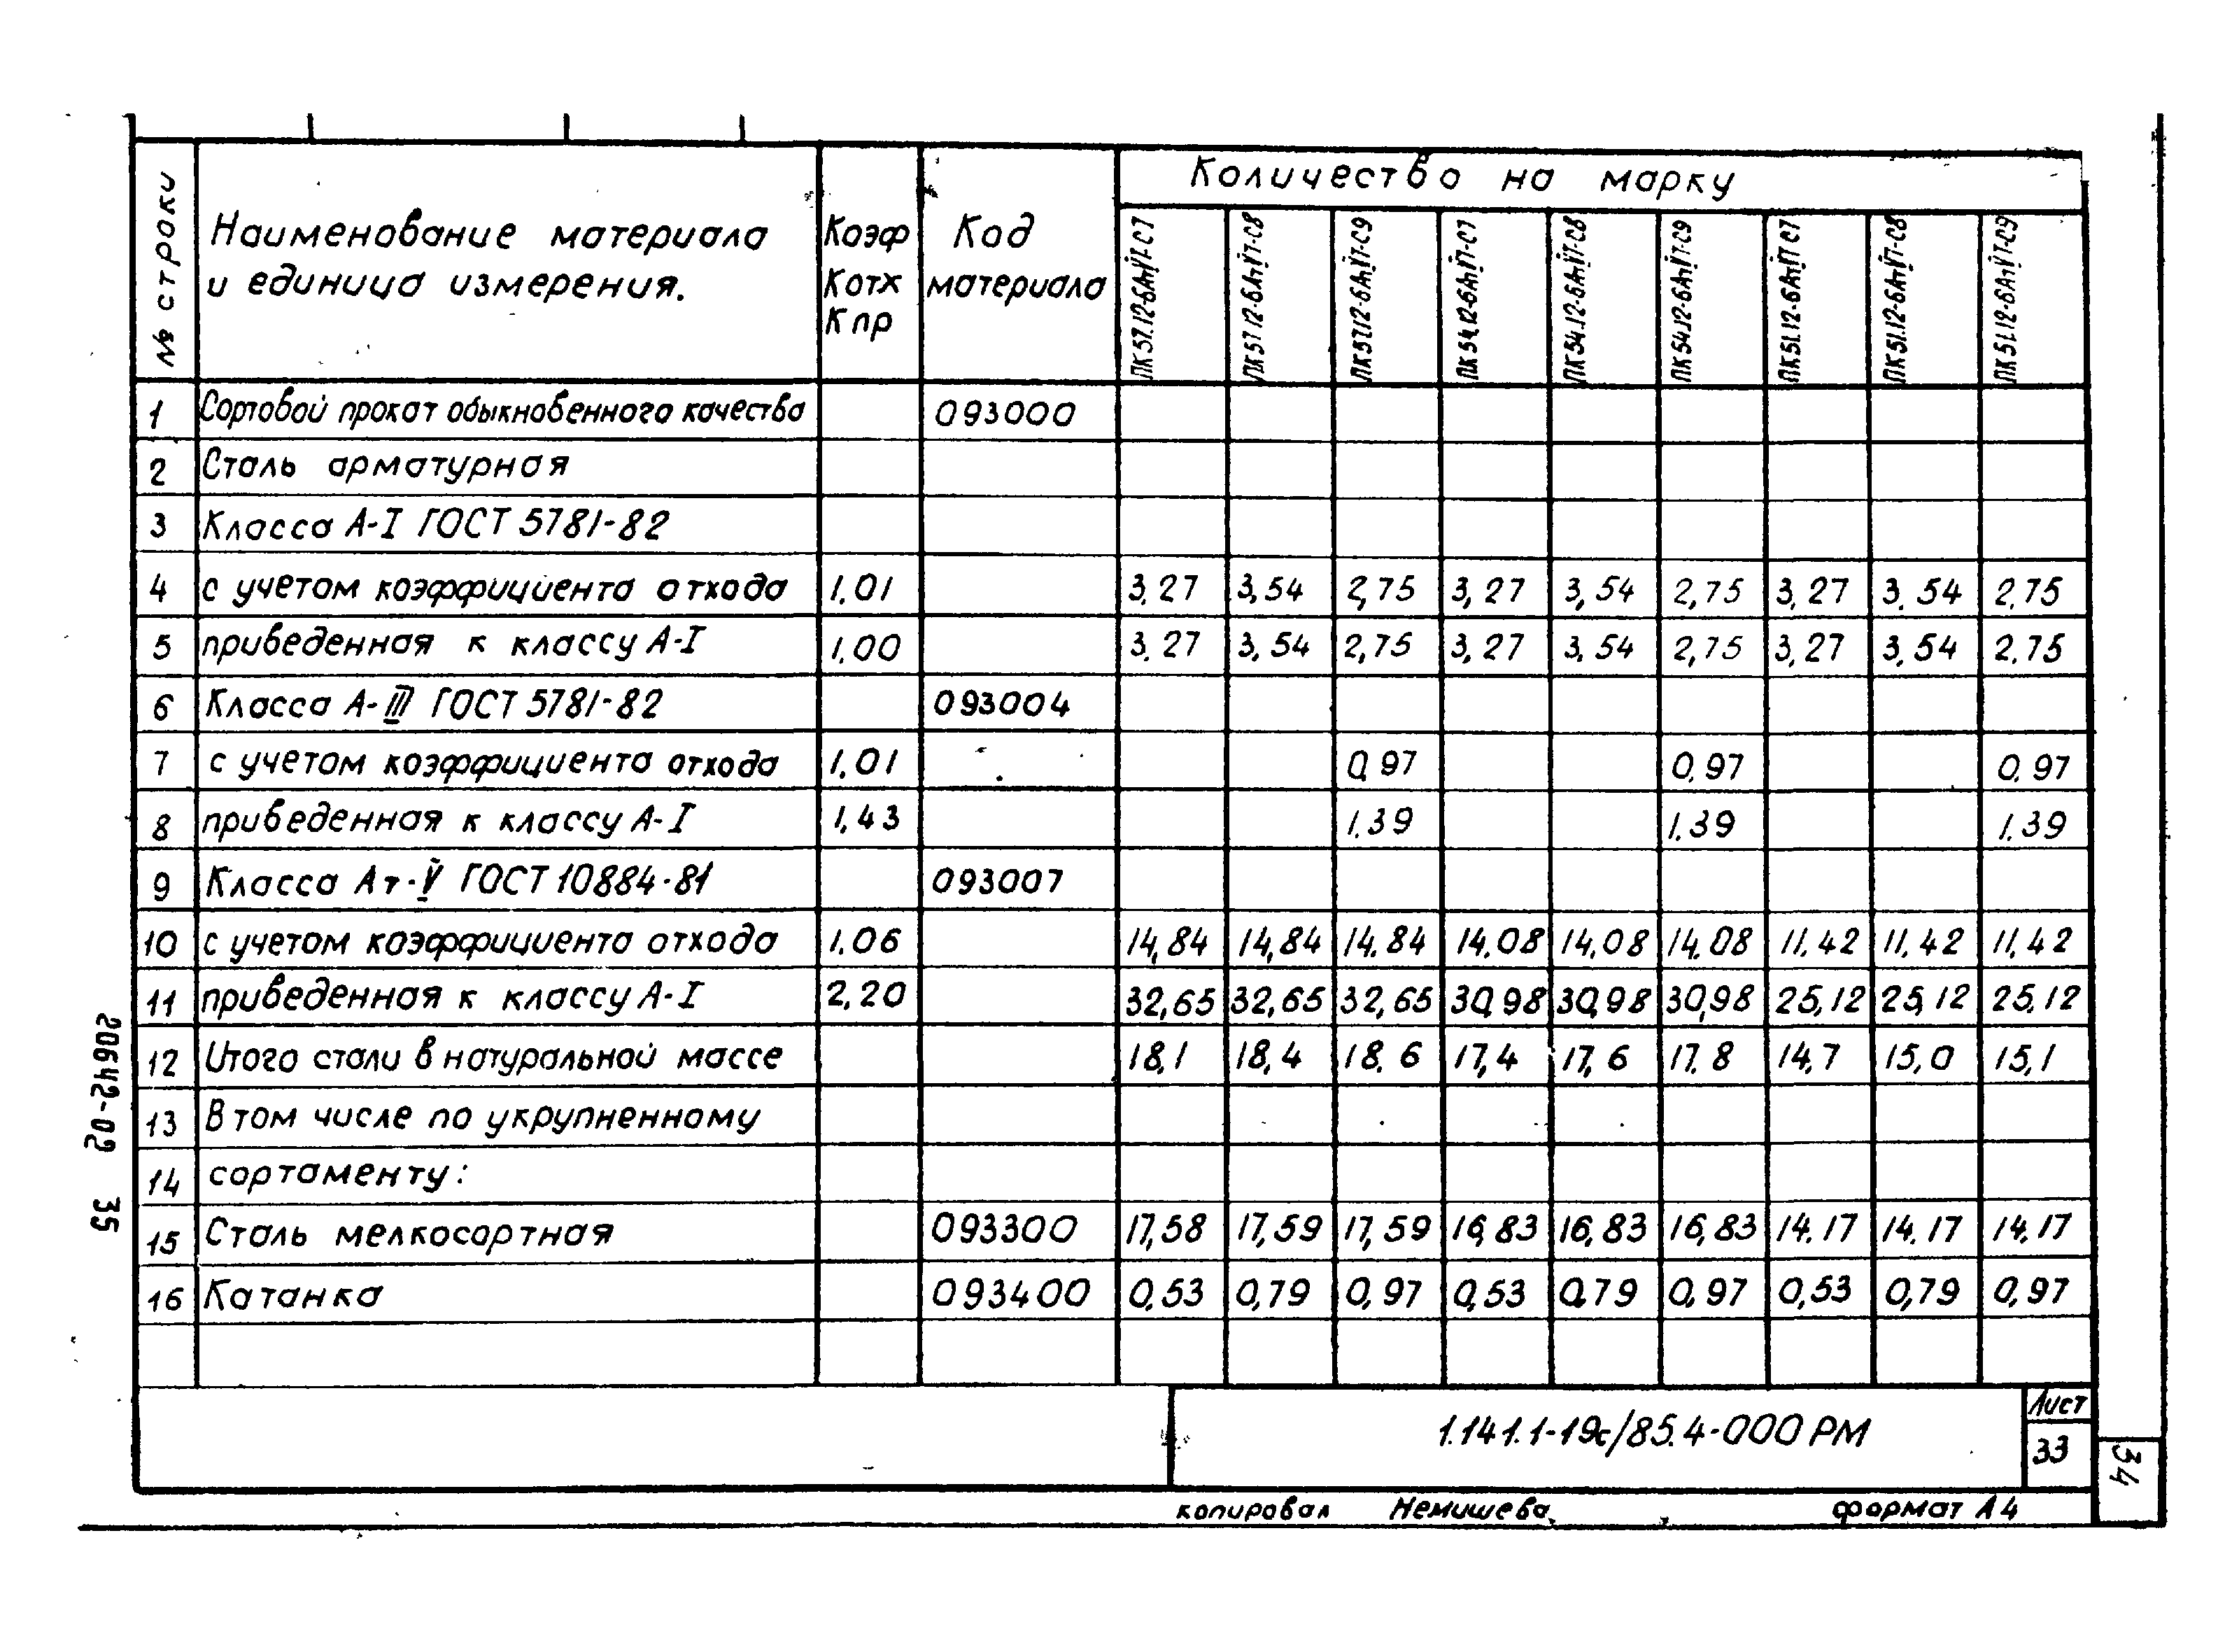 № строки
Наименование материала
и единица измерения.
Коэф
Котх
Кпр
Код
материала
Количество на марку
ПК57.12-6АтVТ-С7 ПК57.12-6АтVТ-С8 ПК57.12-6АтVТ-С9 ПК54.12-6АтVТ-С7 ПК54.12-6АтVТ-С8 ПК54.12-6АтVТ-С9 ПК51.12-6АтVТ С7 ПК51.12-6АтVТ-С8 ПК51.12-6АтVТ-С9
1 Сортовой прокат обыкновенного качества 093000
2 Сталь арматурная
3 Класса А-I ГОСТ 5781-82
4 с учетом коэффициента отхода 1.01 3.27 3,54 2,75 3,27 3,54 2,75 3,27 3.54 2.75
5 приведенная к классу А-I 1.00 3.27 3,54 2,75 3,27 3,54 2,75 3,27 3,54 2.75
6 Класса А-III ГОСТ 5781-82 093004
7 с учетом коэффициента отхода 1.01 0,97 0,97 0,97
8 приведенная к классу А-I 1,43 1.39 1.39 1.39
9 Класса Ат-V ГОСТ 10884-81 093007
10 с учетом коэффициента отхода 1.06 14,84 14,84 14.84 14.08 14,08 14.08 11.42 11.42 11.42
11 приведенная к классу А-I 2,20 32,65 32,65 32,65 30,98 30,98 30,98 25,12 25,12 25,12
12 Итого стали в натуральной массе 18,1 18,4 18.6 17,4 17,6 17.8 14,7 15,0 15,1
13 В том числе по укрупненному
14 сортаменту:
15 Сталь мелкосортная 093300 17,58 17,59 17,59 16,83 16,83 16,83 14.17 14.17 14.17
16 Катанка 093400 0,53 0,79 0,97 0,53 0,79 0,97 0,53 0,79 0,97
20642-02 35
1.141.1-19с/85.4-000 РМ
Лист
33
34
копировал Немишева формат А4